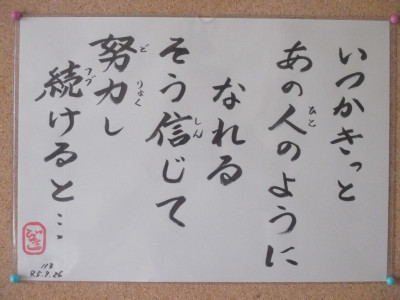 いつかきっと
あの人のように
ひと
なれる
そう信じて
しん
努力し
どりょく
続けると…
つづ
113
R5.9.26